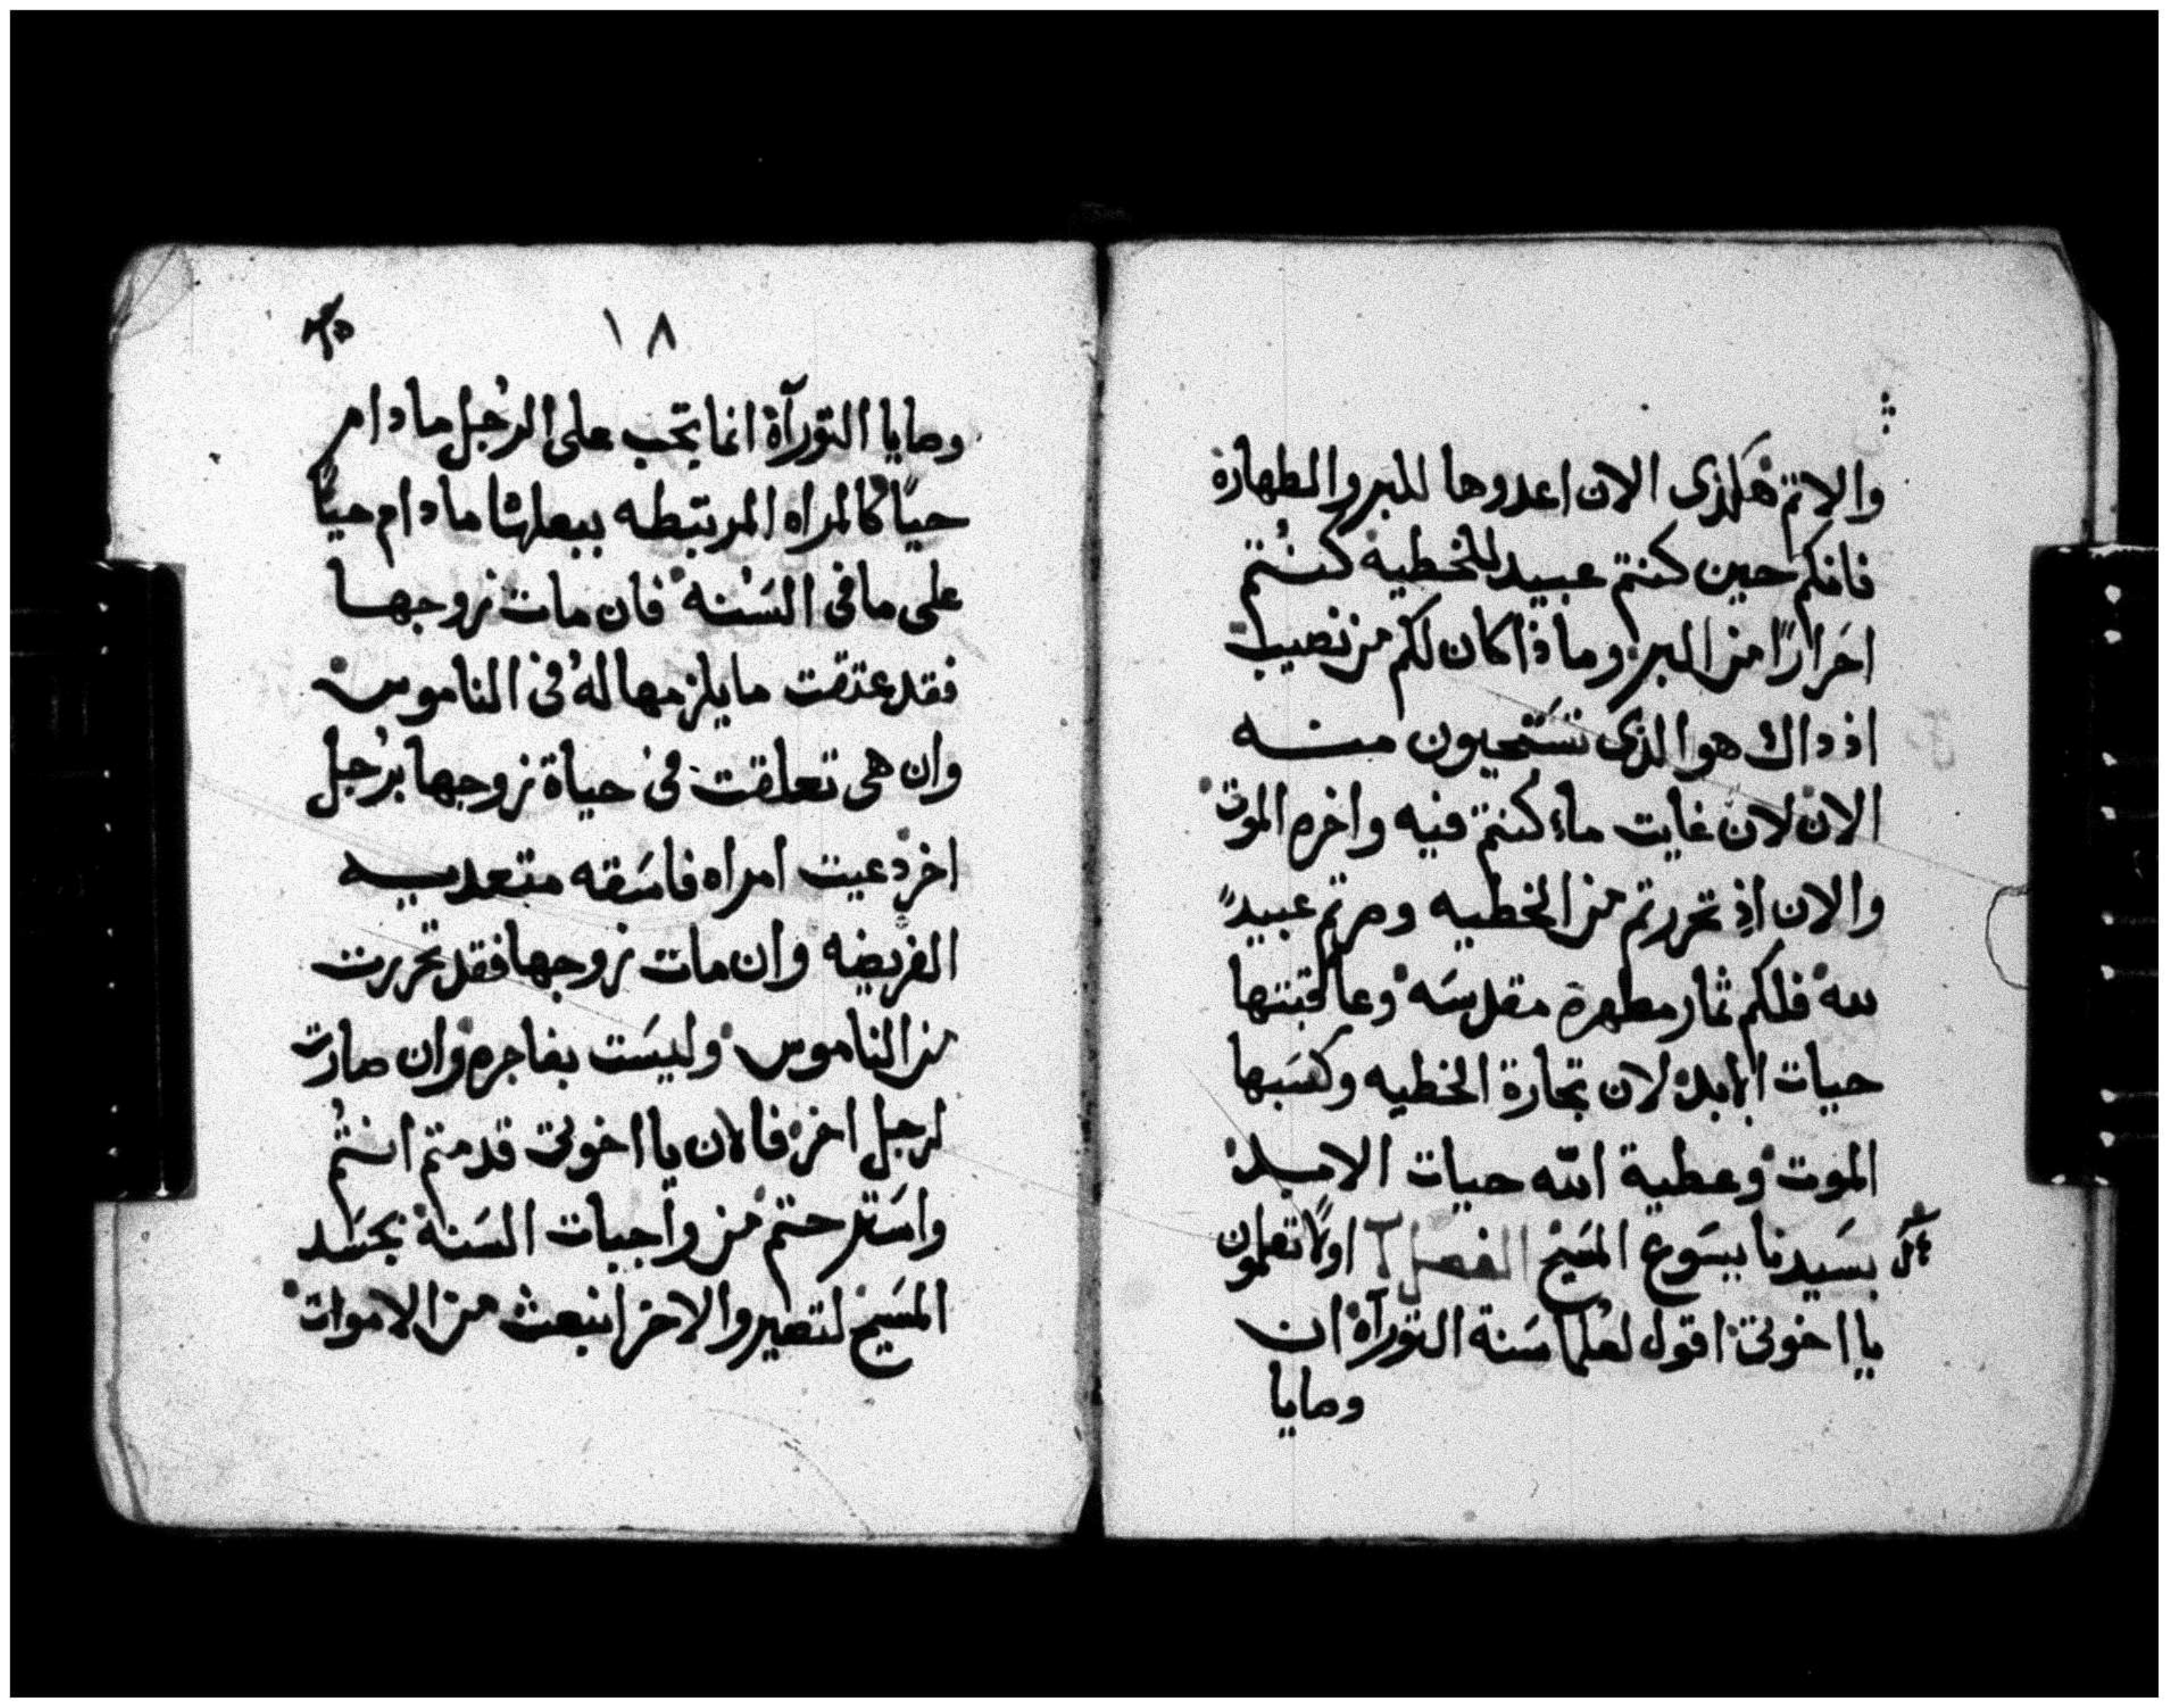 والاثم هكذى الان اعدوها للبر والطهارة
فانكم حين كنتم عبيد للخطيه كنتم
احرارًا من البر وماذا كان لكم من نصيب
اذ داك هو الذى تستحيون منه
الان لان غايت ما كنتم فيه واخره الموت
والان اذ تحررتم من الخطيه وصرتم عبيدً
لله فلكم ثمار مطهرة مقدسه وعاقبتها
حيات الابد لان تجارة الخطيه وكسبها
الموت وعطية الله حيات الابد
بسيدنا يسوع المسيح الفصل اولا تعلمون
يا اخوتى اقول لعلما سنة التورآة ان
وصايا
١٨
وصايا التورآة انما تجب على الرجل ما دام
حيًا كالمراه المرتبطه ببعلها ما دام حيًا
على ما فى السنه فان مات زوجها
فقد عتقت ما يلزمها له فى الناموس
وان هى تعلقت فى حياة زوجها برجل
اخر دعيت امراه فاسقه متعديه
الفريضه وان مات زوجها فقد تحررت
من الناموس وليست بفاجره وان صارت
لرجل اخر فالان يا اخوتى قد متم انتم
واسترحتم من واجبات السنة بجسد
المسيح لتصيروا لاخر انبعث من الاموات